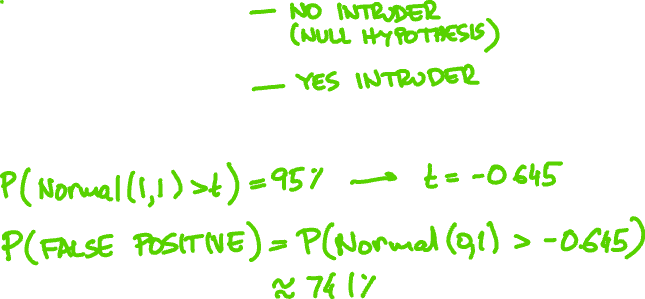 — NO INTRUDER
(NULL HYPOTHESIS)
— YES INTRUDER
P(Normal(1,1)>t)=95% → t=-0.645
P(FALSE POSITIVE)=P(Normal(0,1) > -0.645)
≈ 74.1%